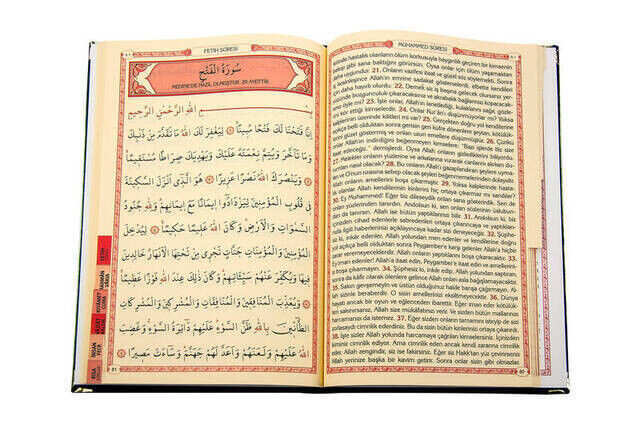 MUHAMMED SÛRESİ
lerinde hastalık olanların ölüm korkusuyla baygınlık geçiren bir kimsenin
bakışı gibi sana baktığını görürsün. Oysa onlar için ölüm yaşamaktan
daha uygundur. 21. Onların vazifesi itaat ve güzel söz söylemektir. İş
kesinleşince Allah'ın emrine sadakat gösterselerdi, elbette kendileri
için daha hayırlı olurdu. 22. Demek siz iş başına gelecek olursanız yer-
yüzünde bozgunculuk çıkaracaksınız ve akrabalık bağlarınızı koparacak-
sınız öyle mi? 23. İşte onlar, Allah'ın lanetlediği, kulaklarını sağır, gözle-
rini kör ettiği kimselerdir. 24. Onlar Kur'ân'ı düşünmüyorlar mı? Yoksa
kalplerinin üzerinde kilitleri mi var? 25. Gerçekten doğru yol kendilerine
açıkça belli olduktan sonra gerisin geri küfre dönenlere şeytan, kötülük-
lerini güzel göstermiş ve onları uzun emellere düşürmüştür. 26. Çünkü
onlar Allah'ın indirdiğini beğenmeyen kimselere: "Bazı işlerde biz size
itaat edeceğiz." demişlerdi. Oysa Allah onların gizlediklerini biliyordu.
27. Melekler onların yüzlerine ve arkalarına vurarak canlarını alırken du-
rumları nasıl olacak? 28. Bu onların Allah'ı gazaplandıran şeylere uyma-
ları ve O'nun rızasına sebep olacak şeyleri beğenmemelerinden dolayıdır.
Allah onların amellerini boşa çıkarmıştır. 29. Yoksa kalplerinde hasta-
lık olanlar Allah kendilerinin kinlerini hiç ortaya çıkarmaz mı sandılar?
30. Ey Muhammed! Eğer biz dileseydik onları sana gösterirdik. Sen de
onları yüzlerinden tanırdın. Andolsun ki, sen onları sözlerinin uslubun-
dan da tanırsın. Allah bütün yaptıklarınızı bilir. 31. Andolsun ki, biz
içinizden cihad edenlerle sabredenleri ortaya çıkarıncaya ve yaptıkları-
nızla ilgili haberlerinizi açıklayıncaya kadar sizi deneyeceğiz. 32. Şüphe-
siz ki, inkâr edenler, Allah yolundan men edenler ve kendilerine doğru
yol açıkça belli olduktan sonra Peygamber'e karşı gelenler Allah'a hiçbir
zarar veremeyeceklerdir. Allah onların yaptıklarını boşa çıkaracaktır. 33.
Ey iman edenler! Allah'a itaat edin, Peygamber'e itaat edin ve amellerini-
zi boşa çıkarmayın. 34. Şüphesiz ki, inkâr edip, Allah yolundan meneden
sonra da kâfir olarak ölenlere gelince Allah onları asla bağışlamayacaktır.
35. Sakın gevşemeyin ve üstün olduğunuz halde barışa çağırmayın. Allah
sizinle beraberdir. O sizin amellerinizi eksiltmeyecektir. 36. Dünya
hayatı ancak bir oyun ve eğlenceden ibarettir. Eğer iman eder kötülük-
lerden sakınırsanız, Allah size mükâfatlarınızı verir. Ve sizden bütün mallarınızı
harcamanızı da istemez. 37. Eğer sizden onların tamamını isteyip de sizi
zorlasaydı cimrilik ederdiniz. Bu da sizin bütün kinlerinizi ortaya çıkarırdı.
38. İşte sizler Allah yolunda harcamaya çağrılan kimselersiniz. İçinizden
kiminiz cimrilik ediyor. Ama cimrilik eden ancak kendi zararına cimrilik
eder. Allah zengindir, siz ise fakirsiniz. Eğer siz Hakk'tan yüz çevirirseniz
Allah yerinize başka bir kavim getirir. Sonra onlar sizin gibi olmazlar.
80
FETİH SÛRESİ
سُورَةُ الْفَتْحِ
MEDİNE'DE NAZİL OLMUŞTUR. 29 AYETTİR.
بِسْمِ اللّٰهِ الرَّحْمٰنِ الرَّحِيمِ
اِنَّا فَتَحْنَا لَكَ فَتْحًا مُبِينًا ١ لِيَغْفِرَ لَكَ اللّٰهُ مَا تَقَدَّمَ مِنْ ذَنْبِكَ
وَمَا تَاَخَّرَ وَيُتِمَّ نِعْمَتَهُ عَلَيْكَ وَيَهْدِيَكَ صِرَاطًا مُسْتَقِيمًا
٢ وَيَنْصُرَكَ اللّٰهُ نَصْرًا عَزِيزًا ٣ هُوَ الَّذِى اَنْزَلَ السَّكِينَةَ
فِى قُلُوبِ الْمُؤْمِنِينَ لِيَزْدَادُوا اِيمَانًا مَعَ اِيمَانِهِمْ وَلِلّٰهِ جُنُودُ
السَّمٰوَاتِ وَالْاَرْضِ وَكَانَ اللّٰهُ عَلِيمًا حَكِيمًا ٤ لِيُدْخِلَ
الْمُؤْمِنِينَ وَالْمُؤْمِنَاتِ جَنَّاتٍ تَجْرِى مِنْ تَحْتِهَا الْاَنْهَارُ خَالِدِينَ
فِيهَا وَيُكَفِّرَ عَنْهُمْ سَيِّئَاتِهِمْ وَكَانَ ذٰلِكَ عِنْدَ اللّٰهِ فَوْزًا عَظِيمًا
٥ وَيُعَذِّبَ الْمُنَافِقِينَ وَالْمُنَافِقَاتِ وَالْمُشْرِكِينَ وَالْمُشْرِكَاتِ
الظَّانِّينَ بِاللّٰهِ ظَنَّ السَّوْءِ عَلَيْهِمْ دَائِرَةُ السَّوْءِ وَغَضِبَ
اللّٰهُ عَلَيْهِمْ وَلَعَنَهُمْ وَاَعَدَّ لَهُمْ جَهَنَّمَ وَسَاءَتْ مَصِيرًا ٦
81
FETİH
RAHMÂN
VAKIA
KIYAMET
CUMA
NEBE
İNSAN
FECR
KISA